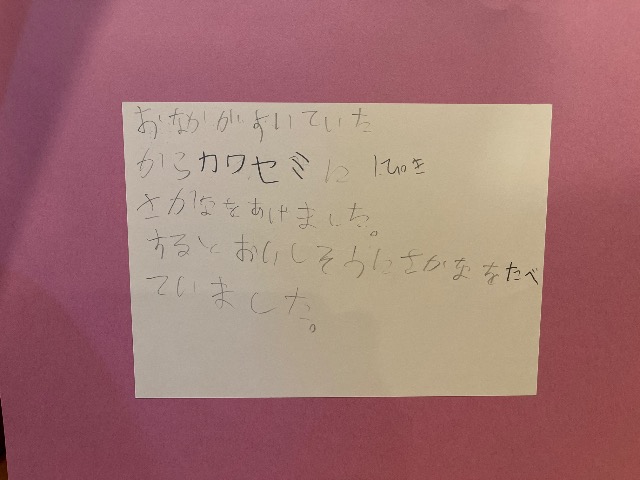 おなかがすいていた
からカワセミに 1ぴき
さかなをあげました。
するとおいしそうにさかなをたべ
ていました。